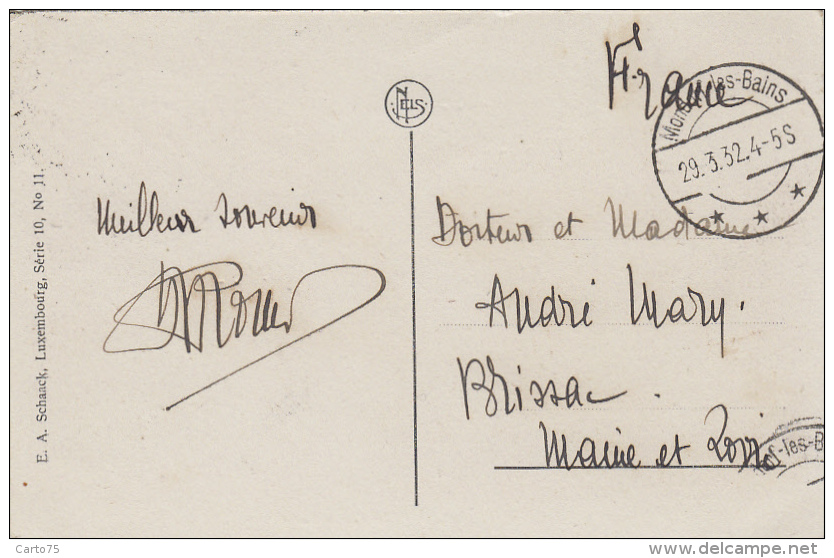 E. A. Schaack, Luxembourg, Série 10, No 11.
NELS
Meilleur souvenir
France
Mondorf-les-Bains
29.3.32.4-5S
Docteur et Madame
André Mary.
Brissac.
Maine et Loire
rf-les-B
Carto75
www.delcampe.net